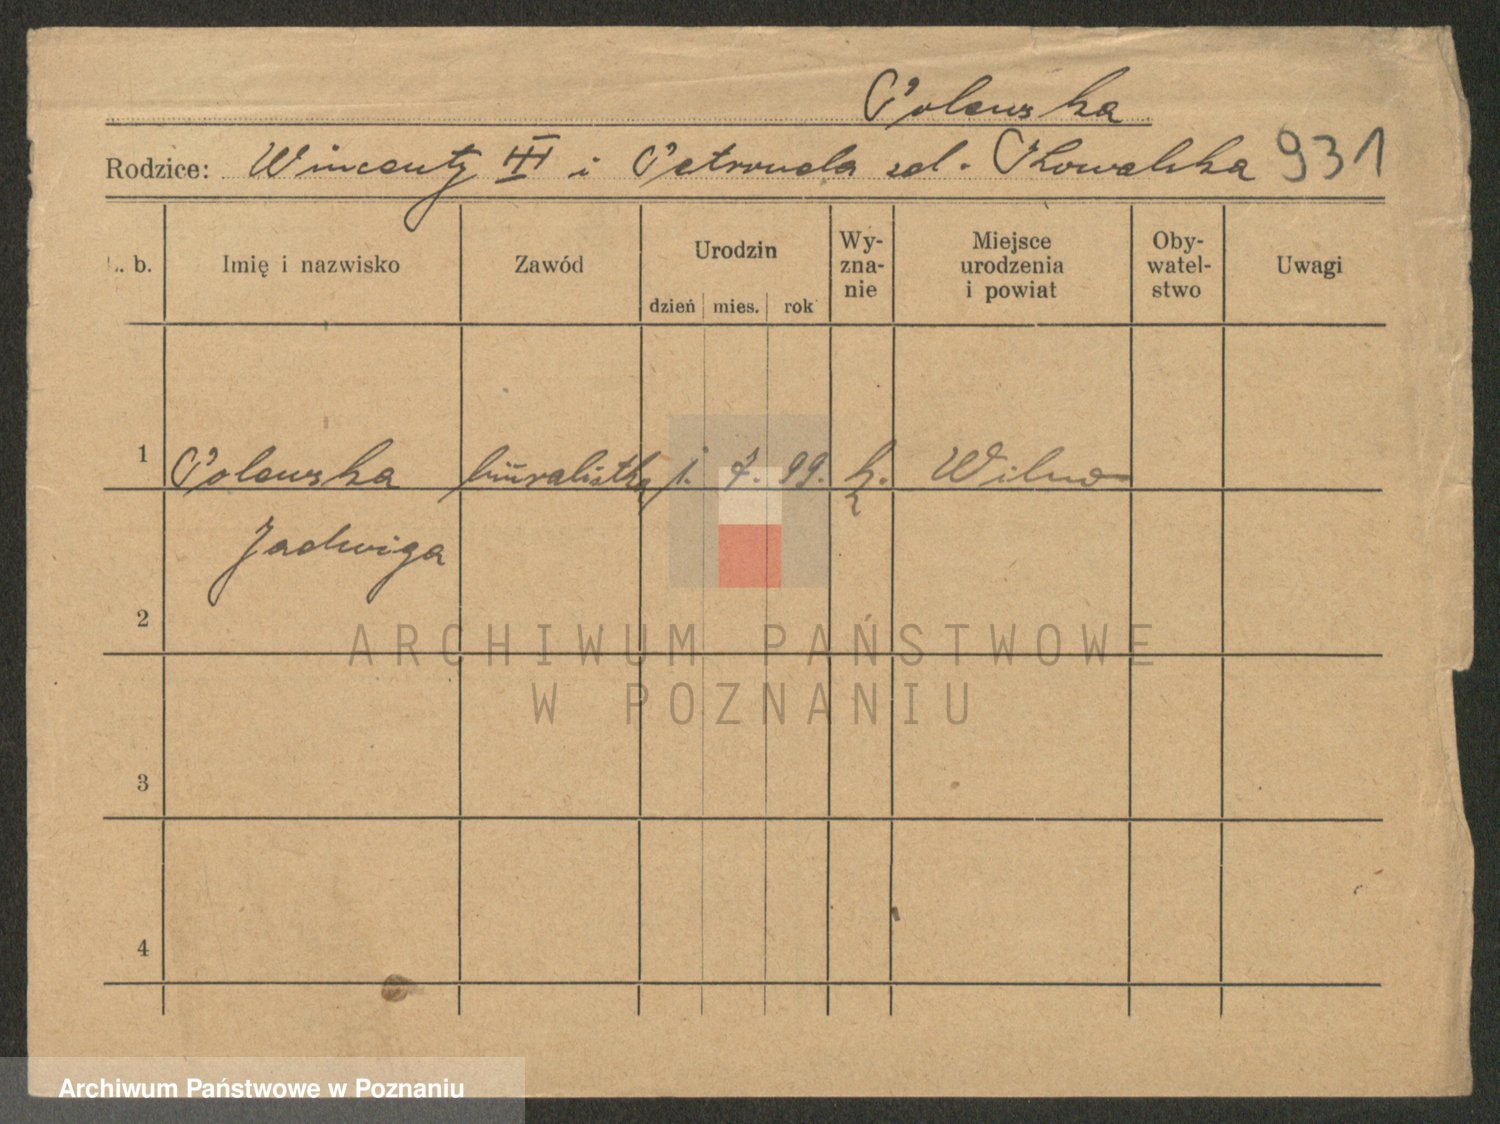 Polewska
Rodzice: Wincenty III i Petronela zd. Kowalska 931
L. b. Imię i nazwisko Zawód Urodzin dzień mies. rok Wy-zna-nie Miejsce urodzenia i powiat Oby-watel-stwo Uwagi
1 Polewska biuralistka 1. 7. 99. k. Wilno
Jadwiga
2
ARCHIWUM PAŃSTWOWE
W POZNANIU
3
4
Archiwum Państwowe w Poznaniu